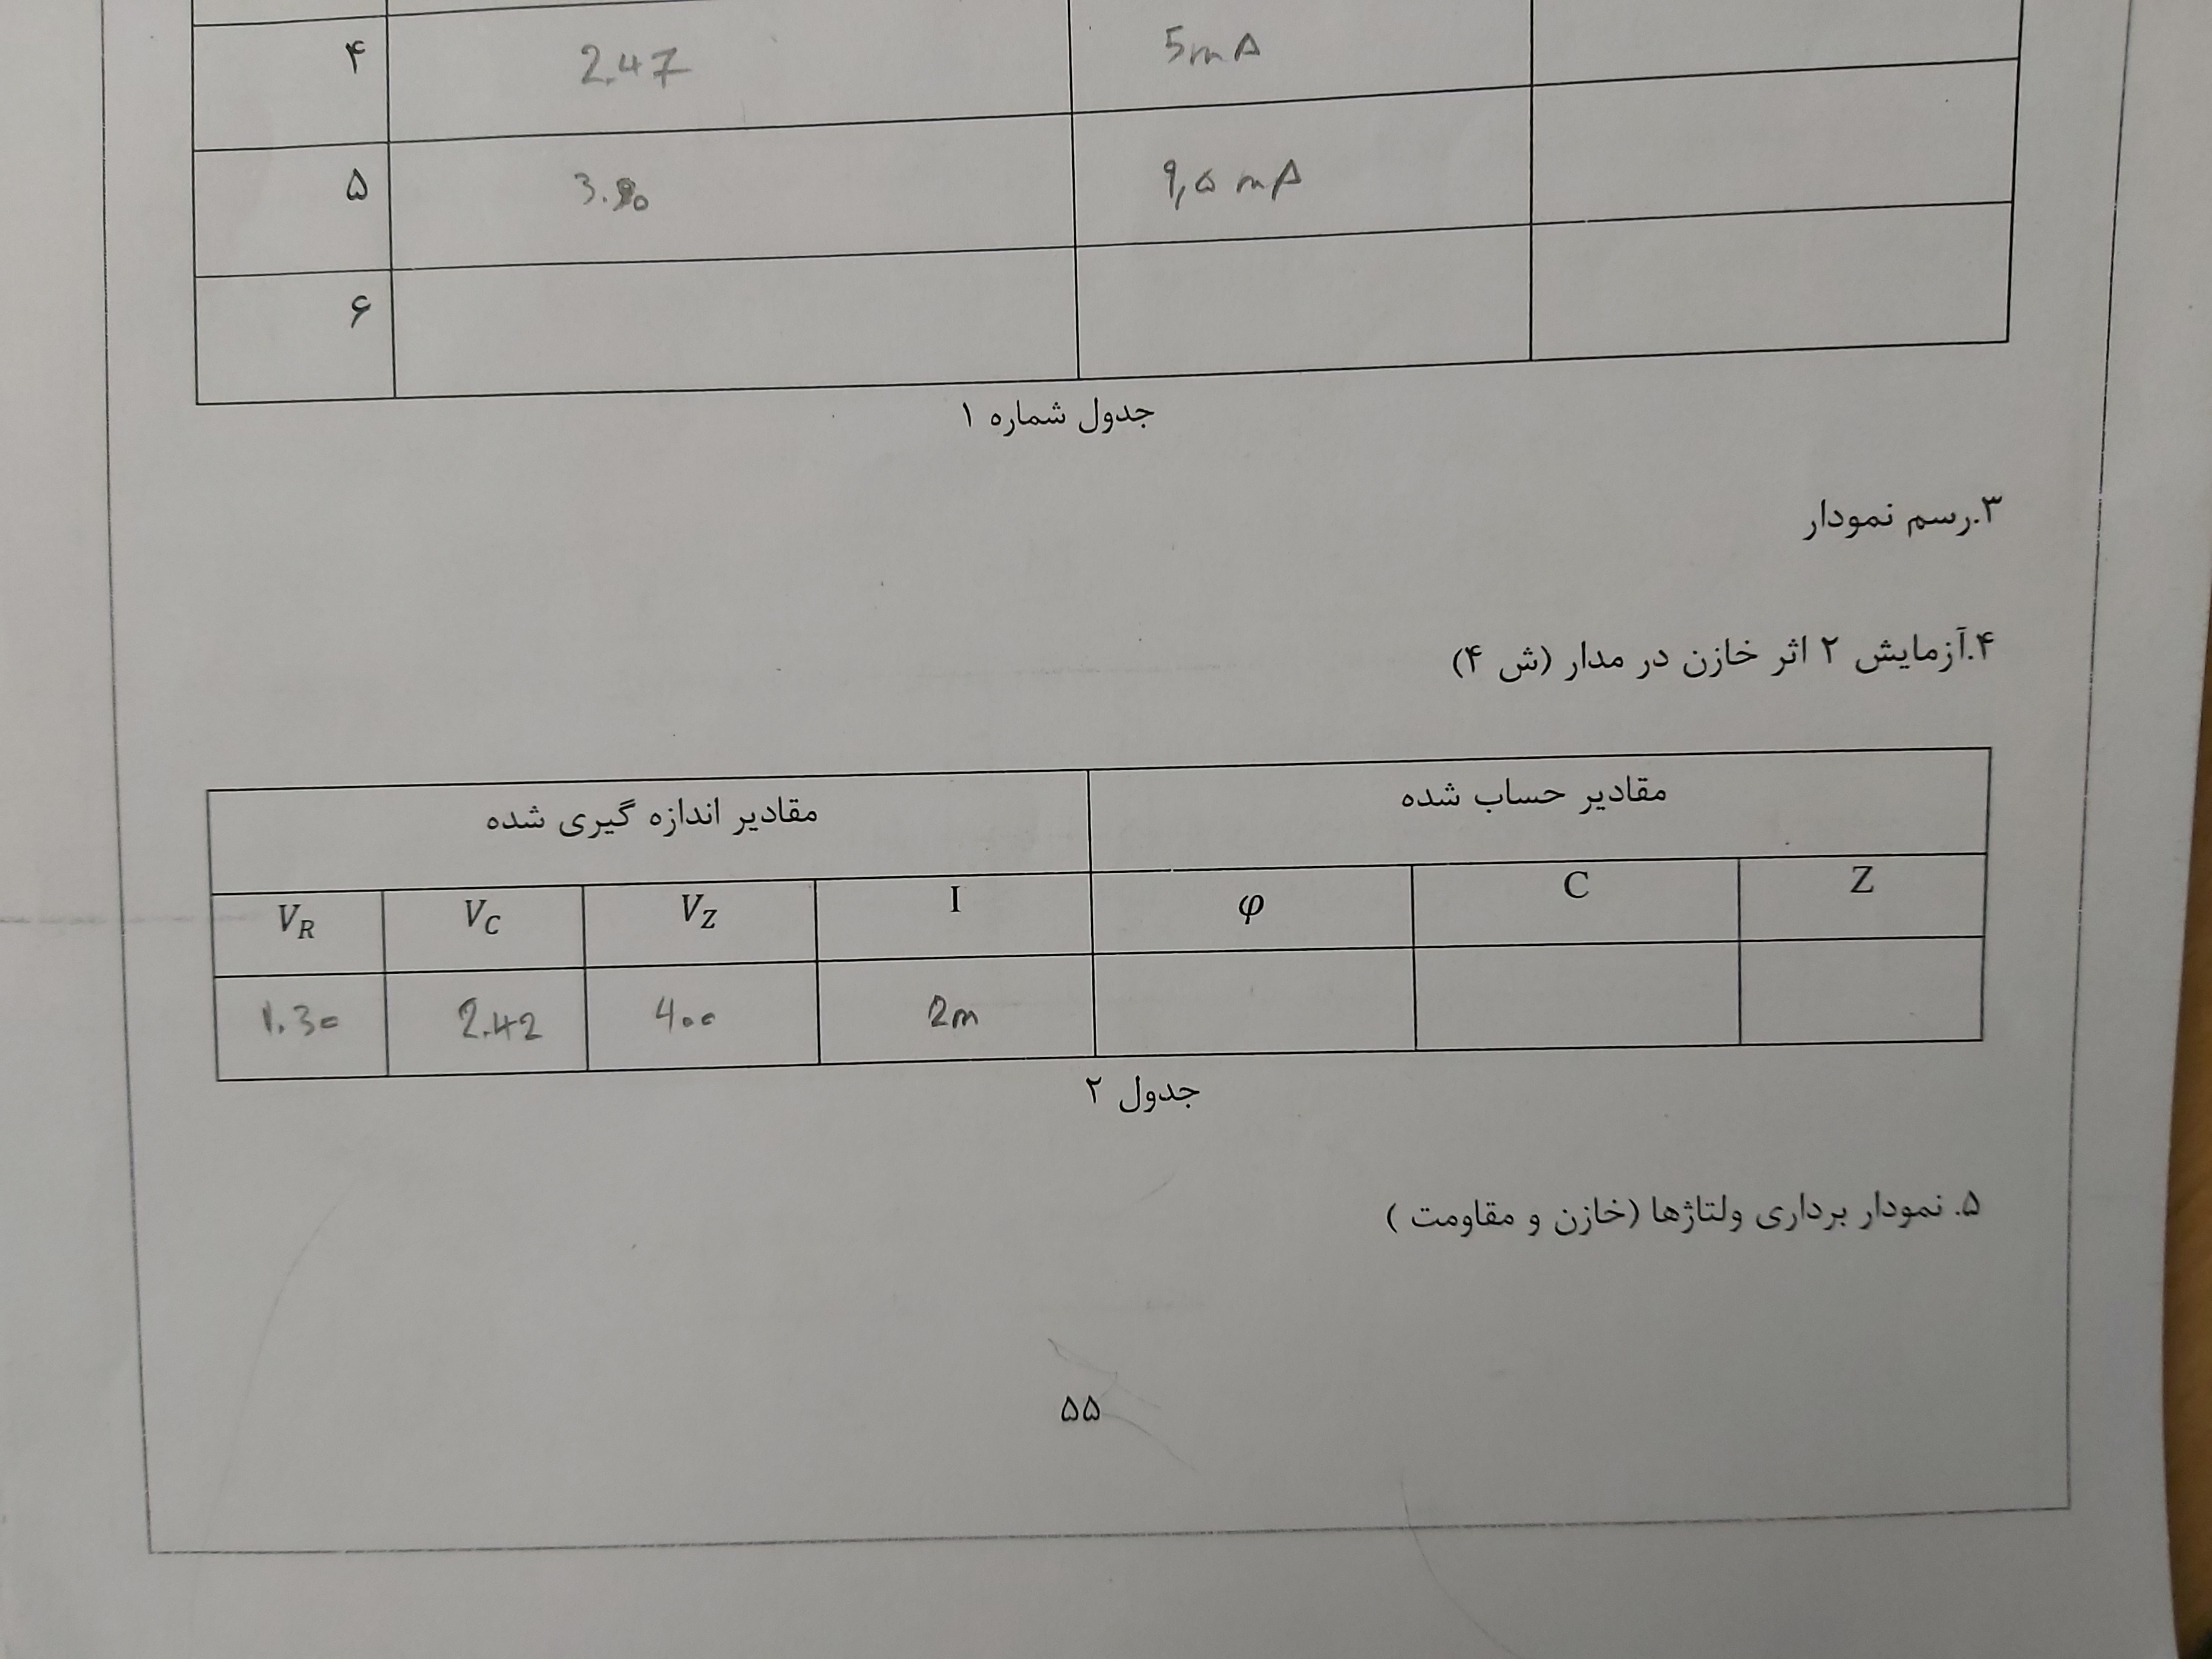 ۴ 2.47 5mA
۵ 3. 9,۵ mA
۶
جدول شماره ۱
۳.رسم نمودار
۴.آزمایش ۲ اثر خازن در مدار (ش ۴)
مقادیر اندازه گیری شده مقادیر حساب شده
V_R V_C V_Z I φ C Z
1.30 2.42 4.00 2m
جدول ۲
۵. نمودار برداری ولتاژها (خازن و مقاومت)
۵۵